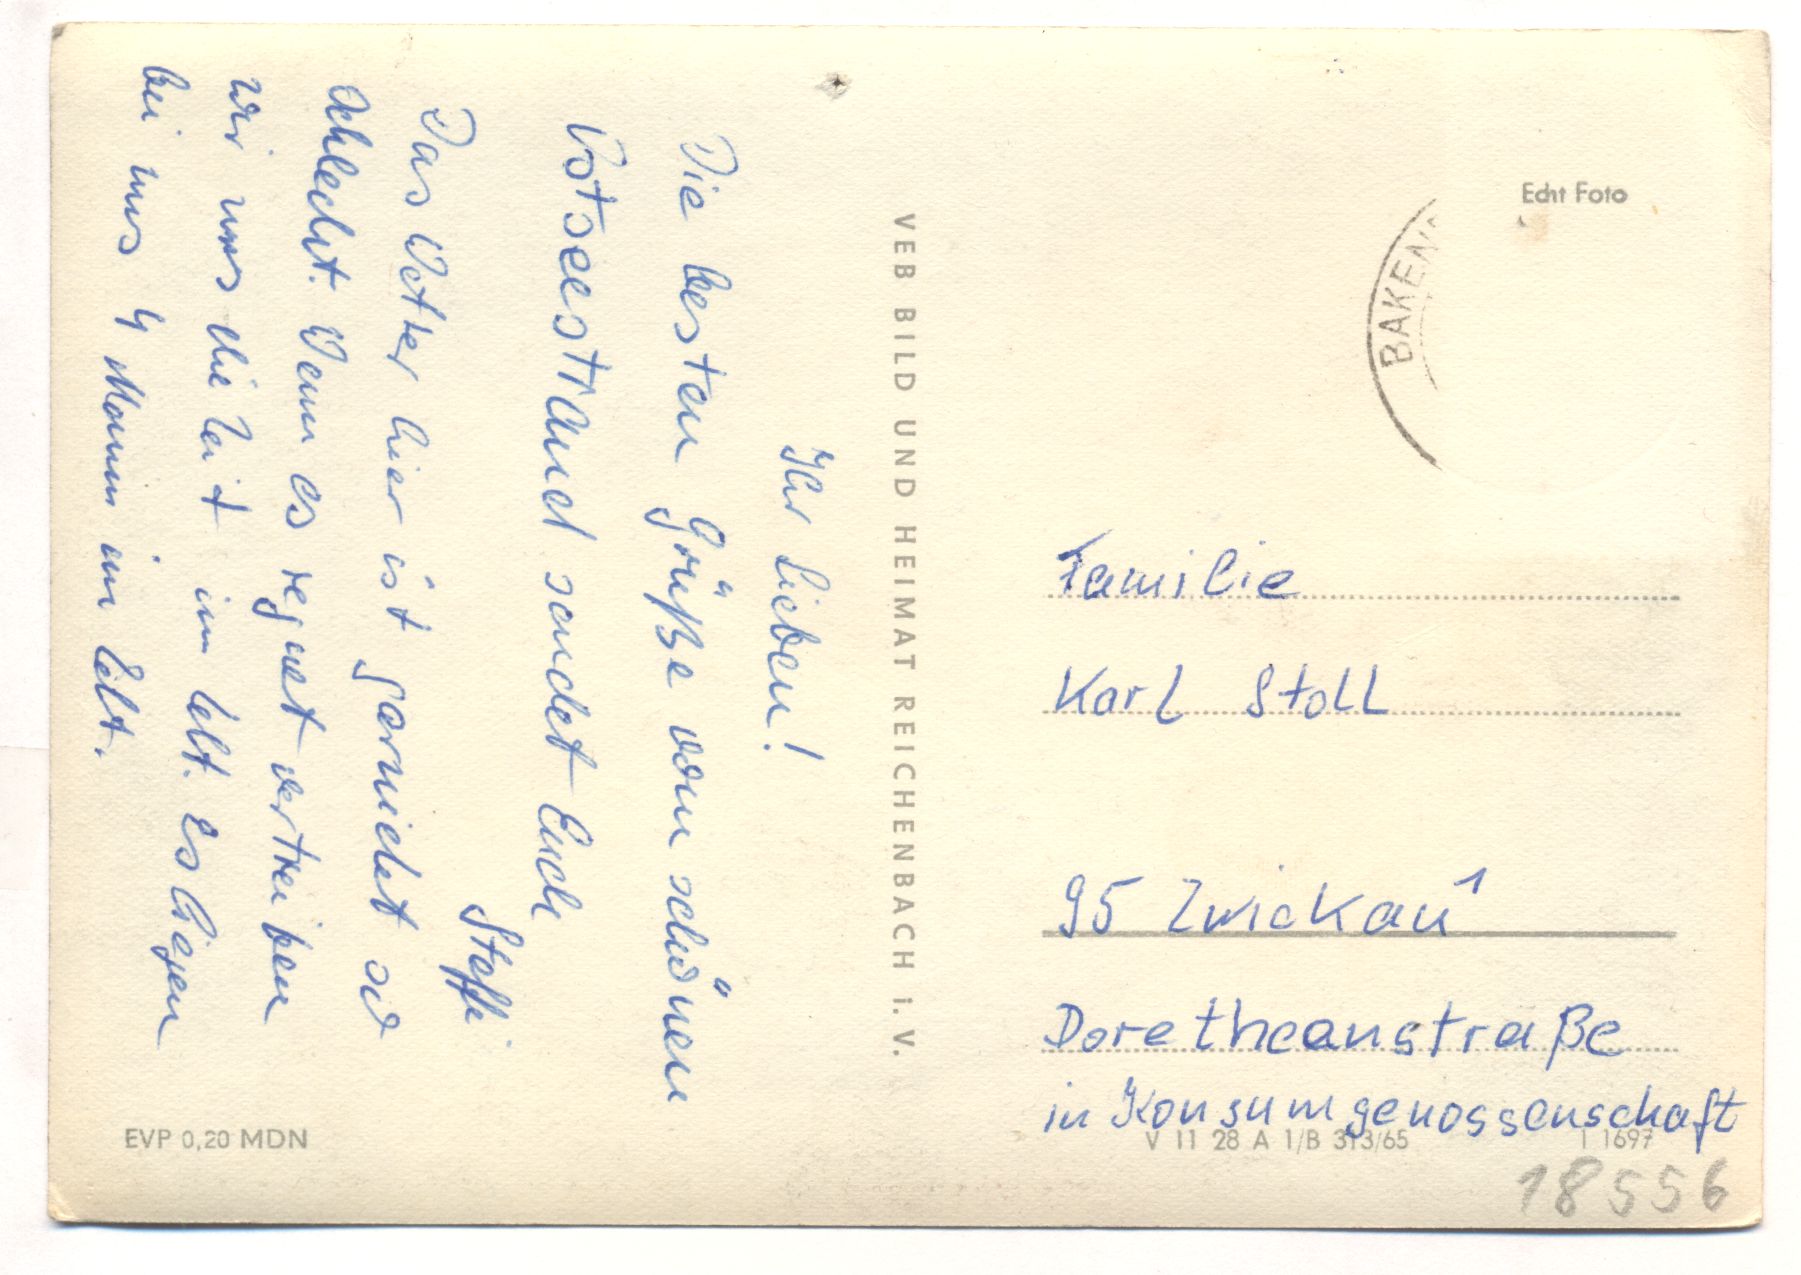 Ihr Lieben!
Die besten Grüße vom schönen
Ostseestrand sendet Euch
Steffi
Das Wetter hier ist garnicht so
schlecht. Wenn es regnet vertreiben
wir uns die Zeit im Zelt. Es liegen
bei uns 4 Mann im Zelt.
VEB BILD UND HEIMAT REICHENBACH I. V.
EVP 0,20 MDN
Echt Foto
BAKEN
Familie
Karl Stoll
95 Zwickau 1
Doretheanstraße
in Konsumgenossenschaft
V 11 28 A 1/B 313/65
1697
18556